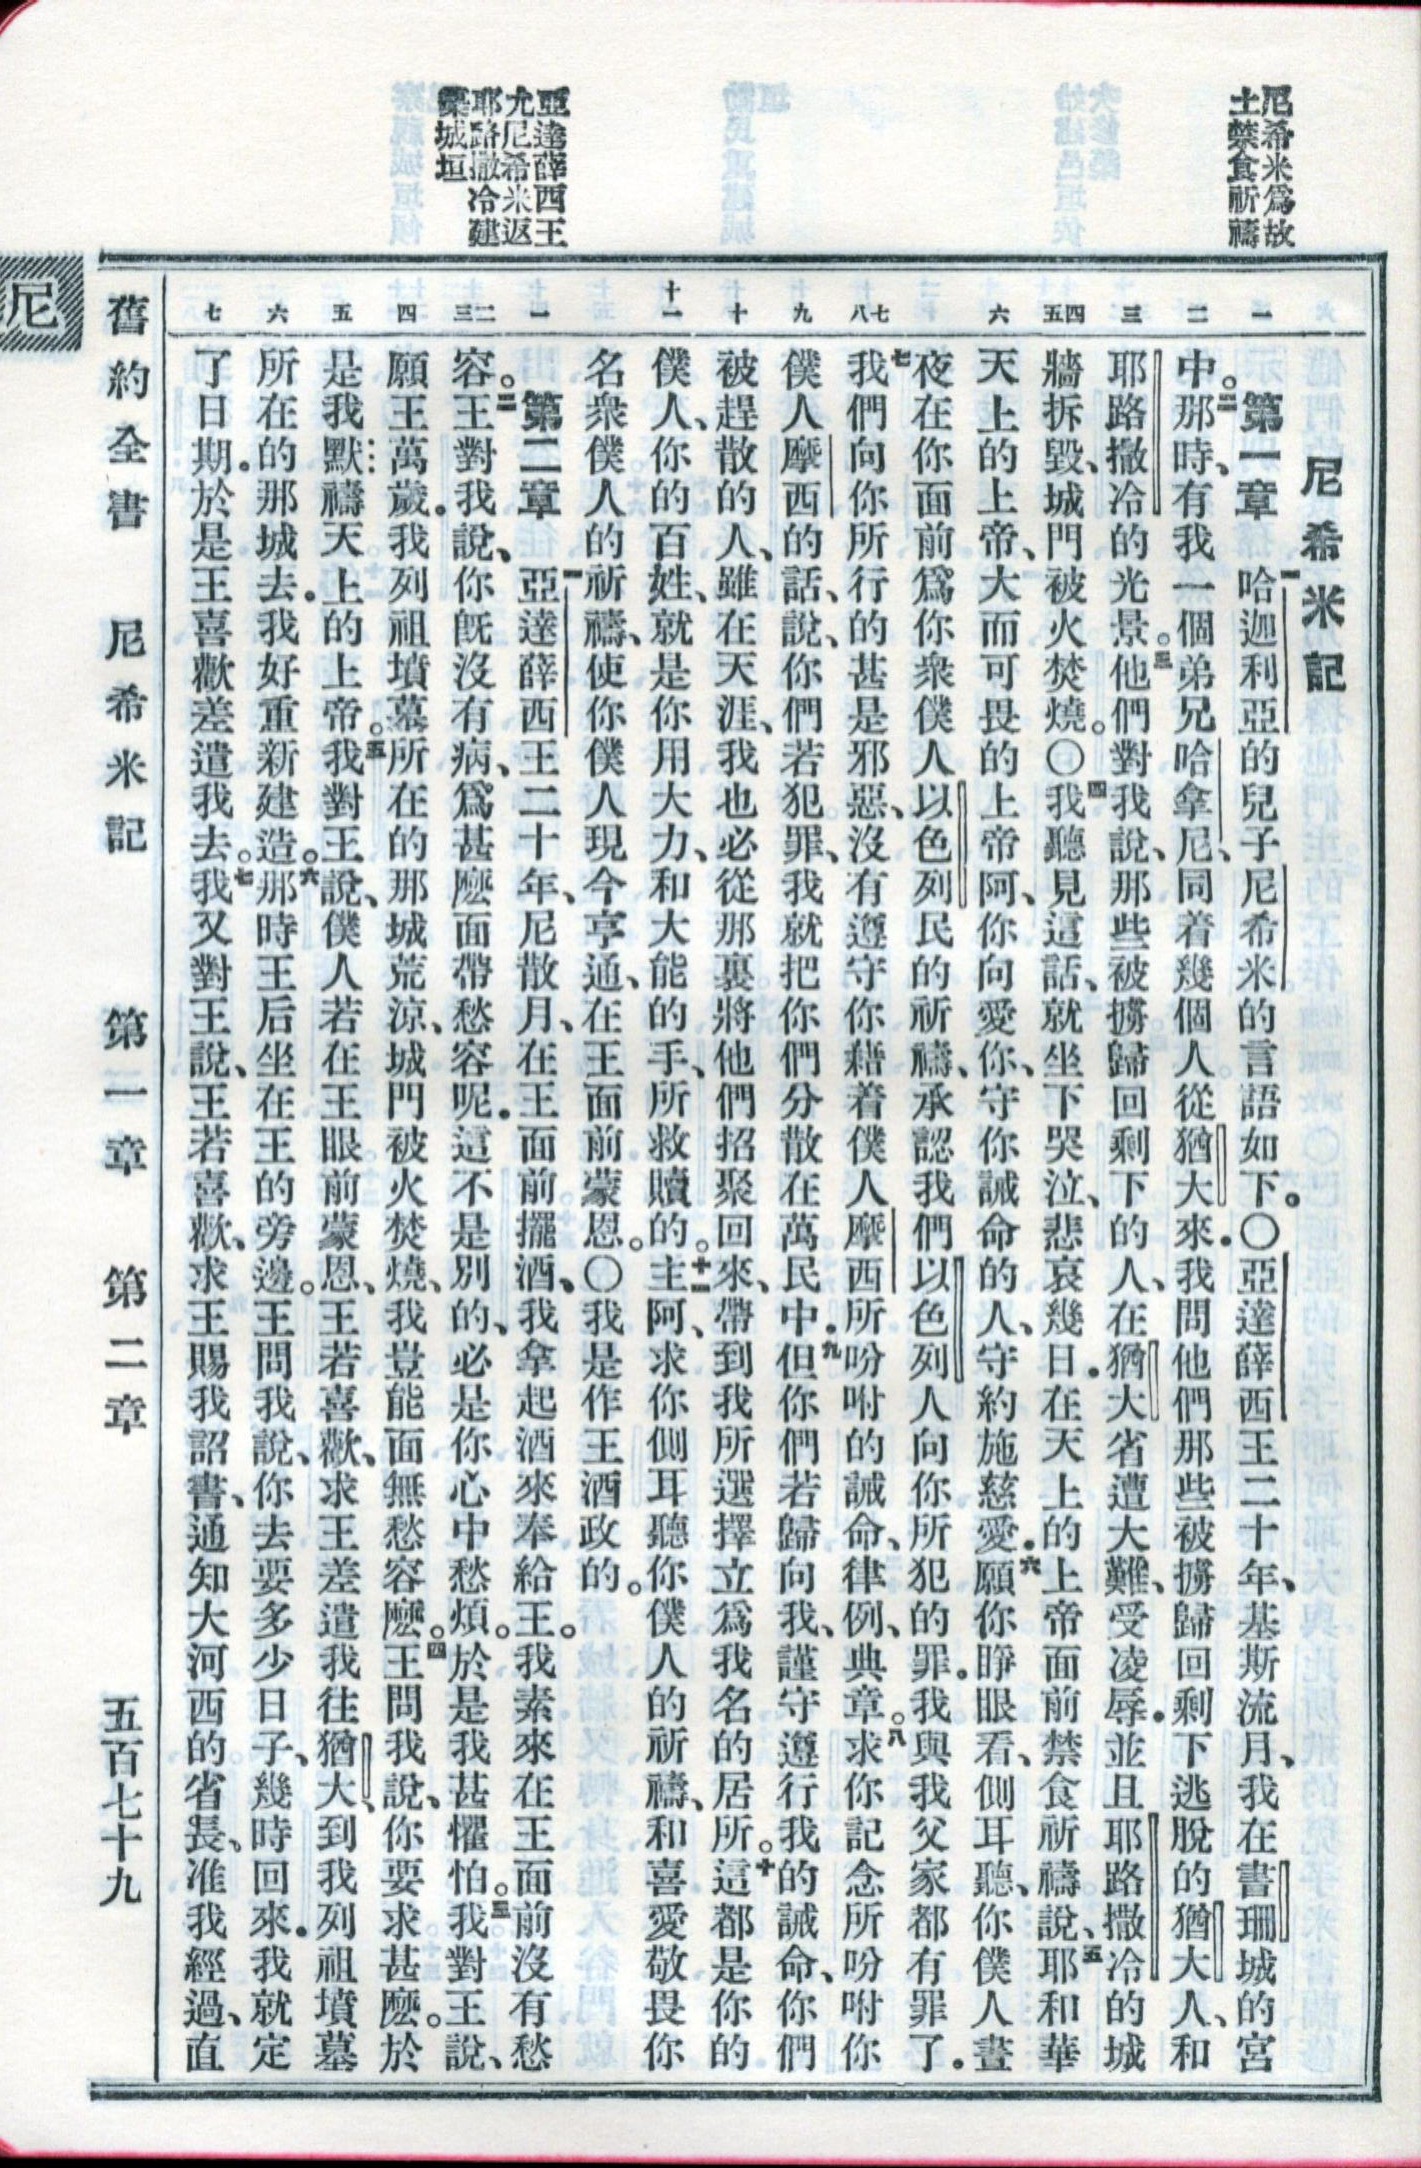 尼希米爲故
土禁食祈禱
亞達薛西王
允尼希米返
耶路撒冷建
築城垣
尼希米記
一
第一章 一哈迦利亞的兒子尼希米的言語如下。〇亞達薛西王二十年、基斯流月、我在書珊城的宮
二
中。二那時、有我一個弟兄哈拿尼、同着幾個人從猶大來．我問他們那些被擄歸回剩下逃脫的猶大人、和
三
耶路撒冷的光景。三他們對我說、那些被擄歸回剩下的人、在猶大省遭大難、受凌辱．並且耶路撒冷的城
四五
牆拆毀、城門被火焚燒。〇四我聽見這話、就坐下哭泣、悲哀幾日．在天上的上帝面前禁食祈禱說、五耶和華
六
天上的上帝、大而可畏的上帝阿、你向愛你、守你誡命的人、守約施慈愛．六願你睜眼看、側耳聽、你僕人晝
夜在你面前爲你衆僕人以色列民的祈禱、承認我們以色列人向你所犯的罪．我與我父家都有罪了．
七八
七我們向你所行的甚是邪惡、沒有遵守你藉着僕人摩西所吩咐的誡命、律例、典章。八求你記念所吩咐你
九
僕人摩西的話、說、你們若犯罪、我就把你們分散在萬民中．九但你們若歸向我、謹守遵行我的誡命、你們
十
被趕散的人、雖在天涯、我也必從那裏將他們招聚回來、帶到我所選擇立爲我名的居所。十這都是你的
十一
僕人、你的百姓、就是你用大力、和大能的手、所救贖的。十一主阿、求你側耳聽你僕人的祈禱、和喜愛敬畏你
名衆僕人的祈禱、使你僕人現今亨通、在王面前蒙恩。〇我是作王酒政的。
一
第二章 一亞達薛西王二十年、尼散月、在王面前擺酒、我拿起酒來奉給王。我素來在王面前沒有愁
二三
容。二王對我說、你旣沒有病、爲甚麼面帶愁容呢．這不是別的、必是你心中愁煩。於是我甚懼怕。三我對王說、
四
願王萬歲．我列祖墳墓所在的那城荒涼、城門被火焚燒、我豈能面無愁容麼。四王問我說、你要求甚麼。於
五
是我默禱天上的上帝。五我對王說、僕人若在王眼前蒙恩、王若喜歡、求王差遣我往猶大、到我列祖墳墓
六
所在的那城去．我好重新建造。六那時王后坐在王的旁邊。王問我說、你去要多少日子、幾時回來．我就定
七
了日期．於是王喜歡差遣我去。七我又對王說、王若喜歡、求王賜我詔書、通知大河西的省長、准我經過、直
尼
舊約全書 尼希米記 第一章 第二章 五百七十九